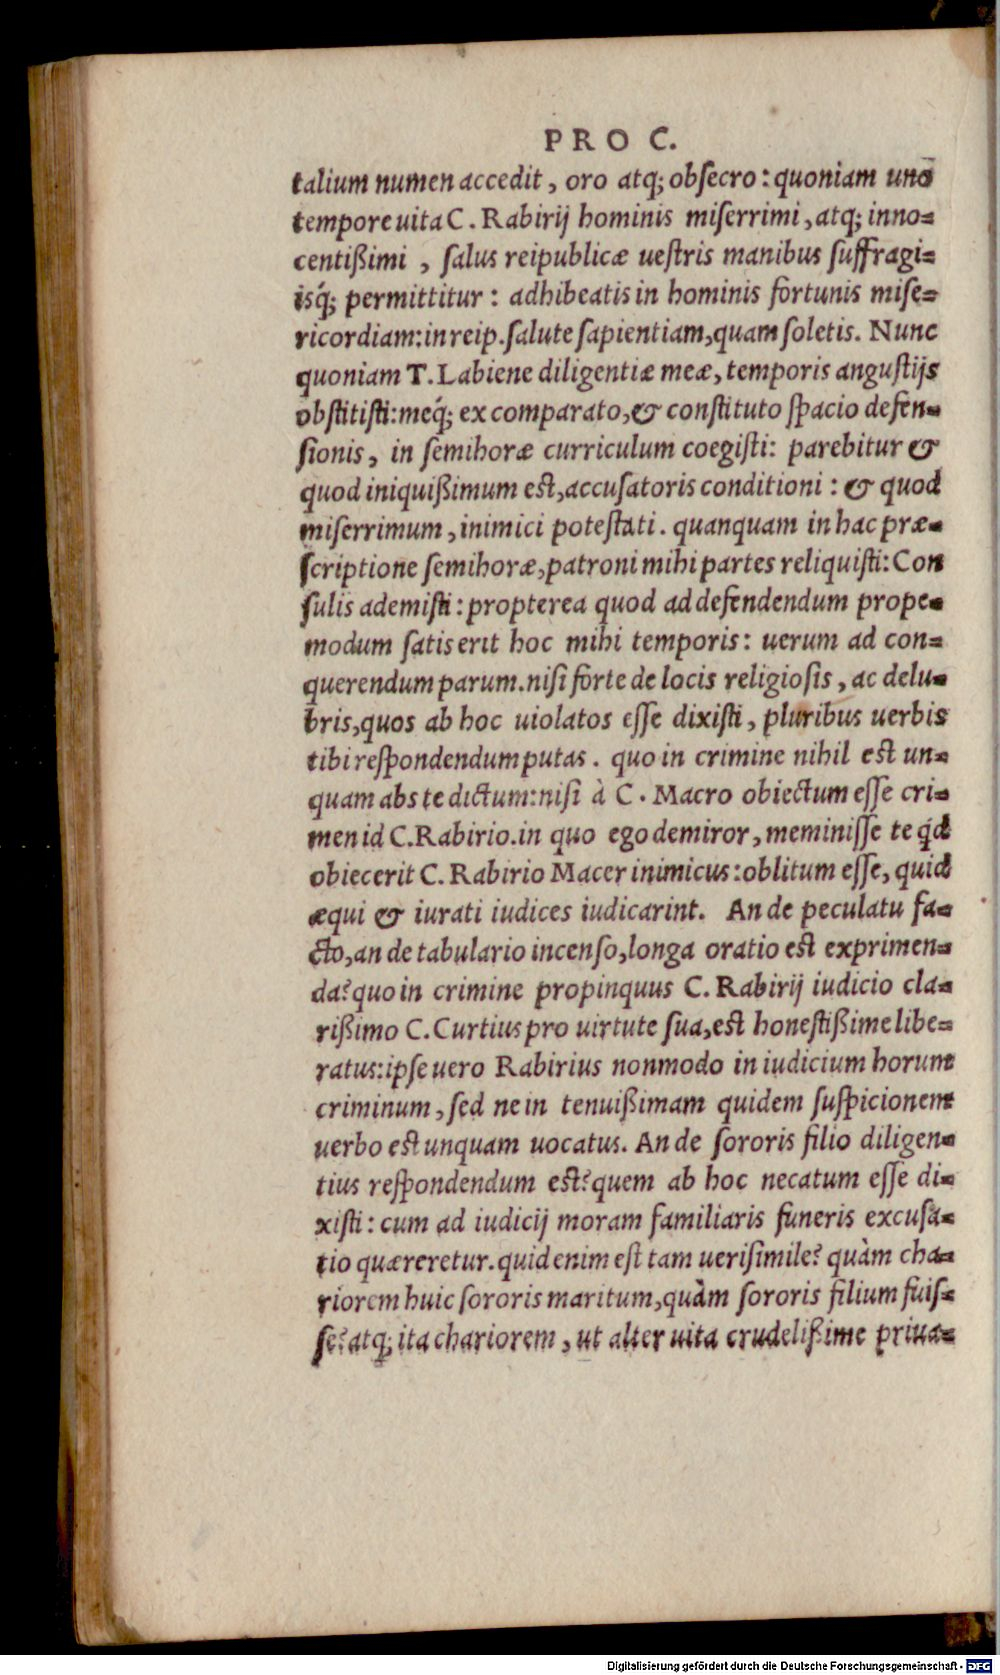 PRO C.
talium numen accedit, oro atq; obſecro: quoniam uno
tempore uita C. Rabirij hominis miſerrimi, atq; inno=
centißimi , ſalus reipublicæ ueſtris manibus ſuffragi=
isq́; permittitur: adhibeatis in hominis fortunis miſe=
ricordiam: in reip. ſalute ſapientiam, quam ſoletis. Nunc
quoniam T. Labiene diligentiæ meæ, temporis anguſtijs
obſtitiſti: meq́; ex comparato, & conſtituto ſpacio defen=
ſionis, in ſemihoræ curriculum coegiſti: parebitur &
quod iniquißimum eſt, accuſatoris conditioni: & quod
miſerrimum, inimici poteſtati. quanquam in hac præ=
ſcriptione ſemihoræ, patroni mihi partes reliquiſti: Con
ſulis ademiſti: propterea quod ad defendendum prope=
modum ſatis erit hoc mihi temporis: uerum ad con=
querendum parum. niſi forte de locis religioſis, ac delu=
bris, quos ab hoc uiolatos eſſe dixiſti, pluribus uerbis
tibi reſpondendum putas. quo in crimine nihil eſt un=
quam abs te dictum: niſi à C. Macro obiectum eſſe cri=
men id C. Rabirio. in quo ego demiror, meminiſſe te qd
obiecerit C. Rabirio Macer inimicus: oblitum eſſe, quid
æqui & iurati iudices iudicarint. An de peculatu fa=
cto, an de tabulario incenſo, longa oratio eſt exprimen=
da? quo in crimine propinquus C. Rabirij iudicio cla=
rißimo C. Curtius pro uirtute ſua, eſt honeſtißime libe=
ratus: ipſe uero Rabirius nonmodo in iudicium horum
criminum, ſed ne in tenuißimam quidem ſuſpicionem
uerbo eſt unquam uocatus. An de ſororis filio diligen=
tius reſpondendum eſt? quem ab hoc necatum eſſe di=
xiſti: cum ad iudicij moram familiaris funeris excuſa=
tio quæreretur. quid enim eſt tam ueriſimile? quàm cha=
riorem huic ſororis maritum, quàm ſororis filium fuiſ=
ſe? atq; ita chariorem, ut alter uita crudelißime priua=
Digitalisierung gefördert durch die Deutsche Forschungsgemeinschaft - DFG